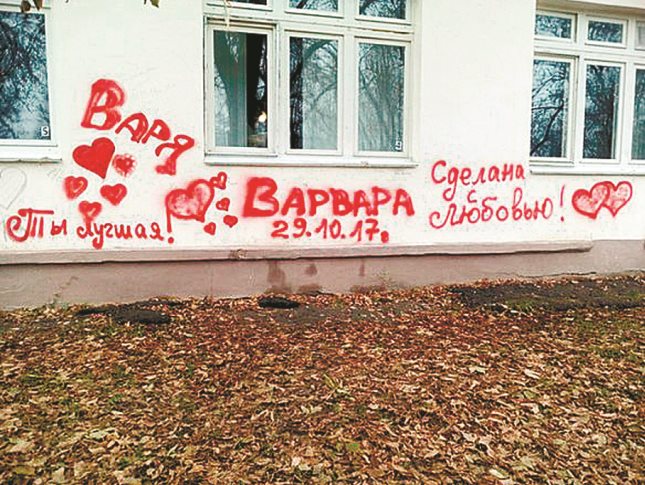 Варя
Ты лучшая!
Варвара
29.10.17.
Сделана
с
Любовью!